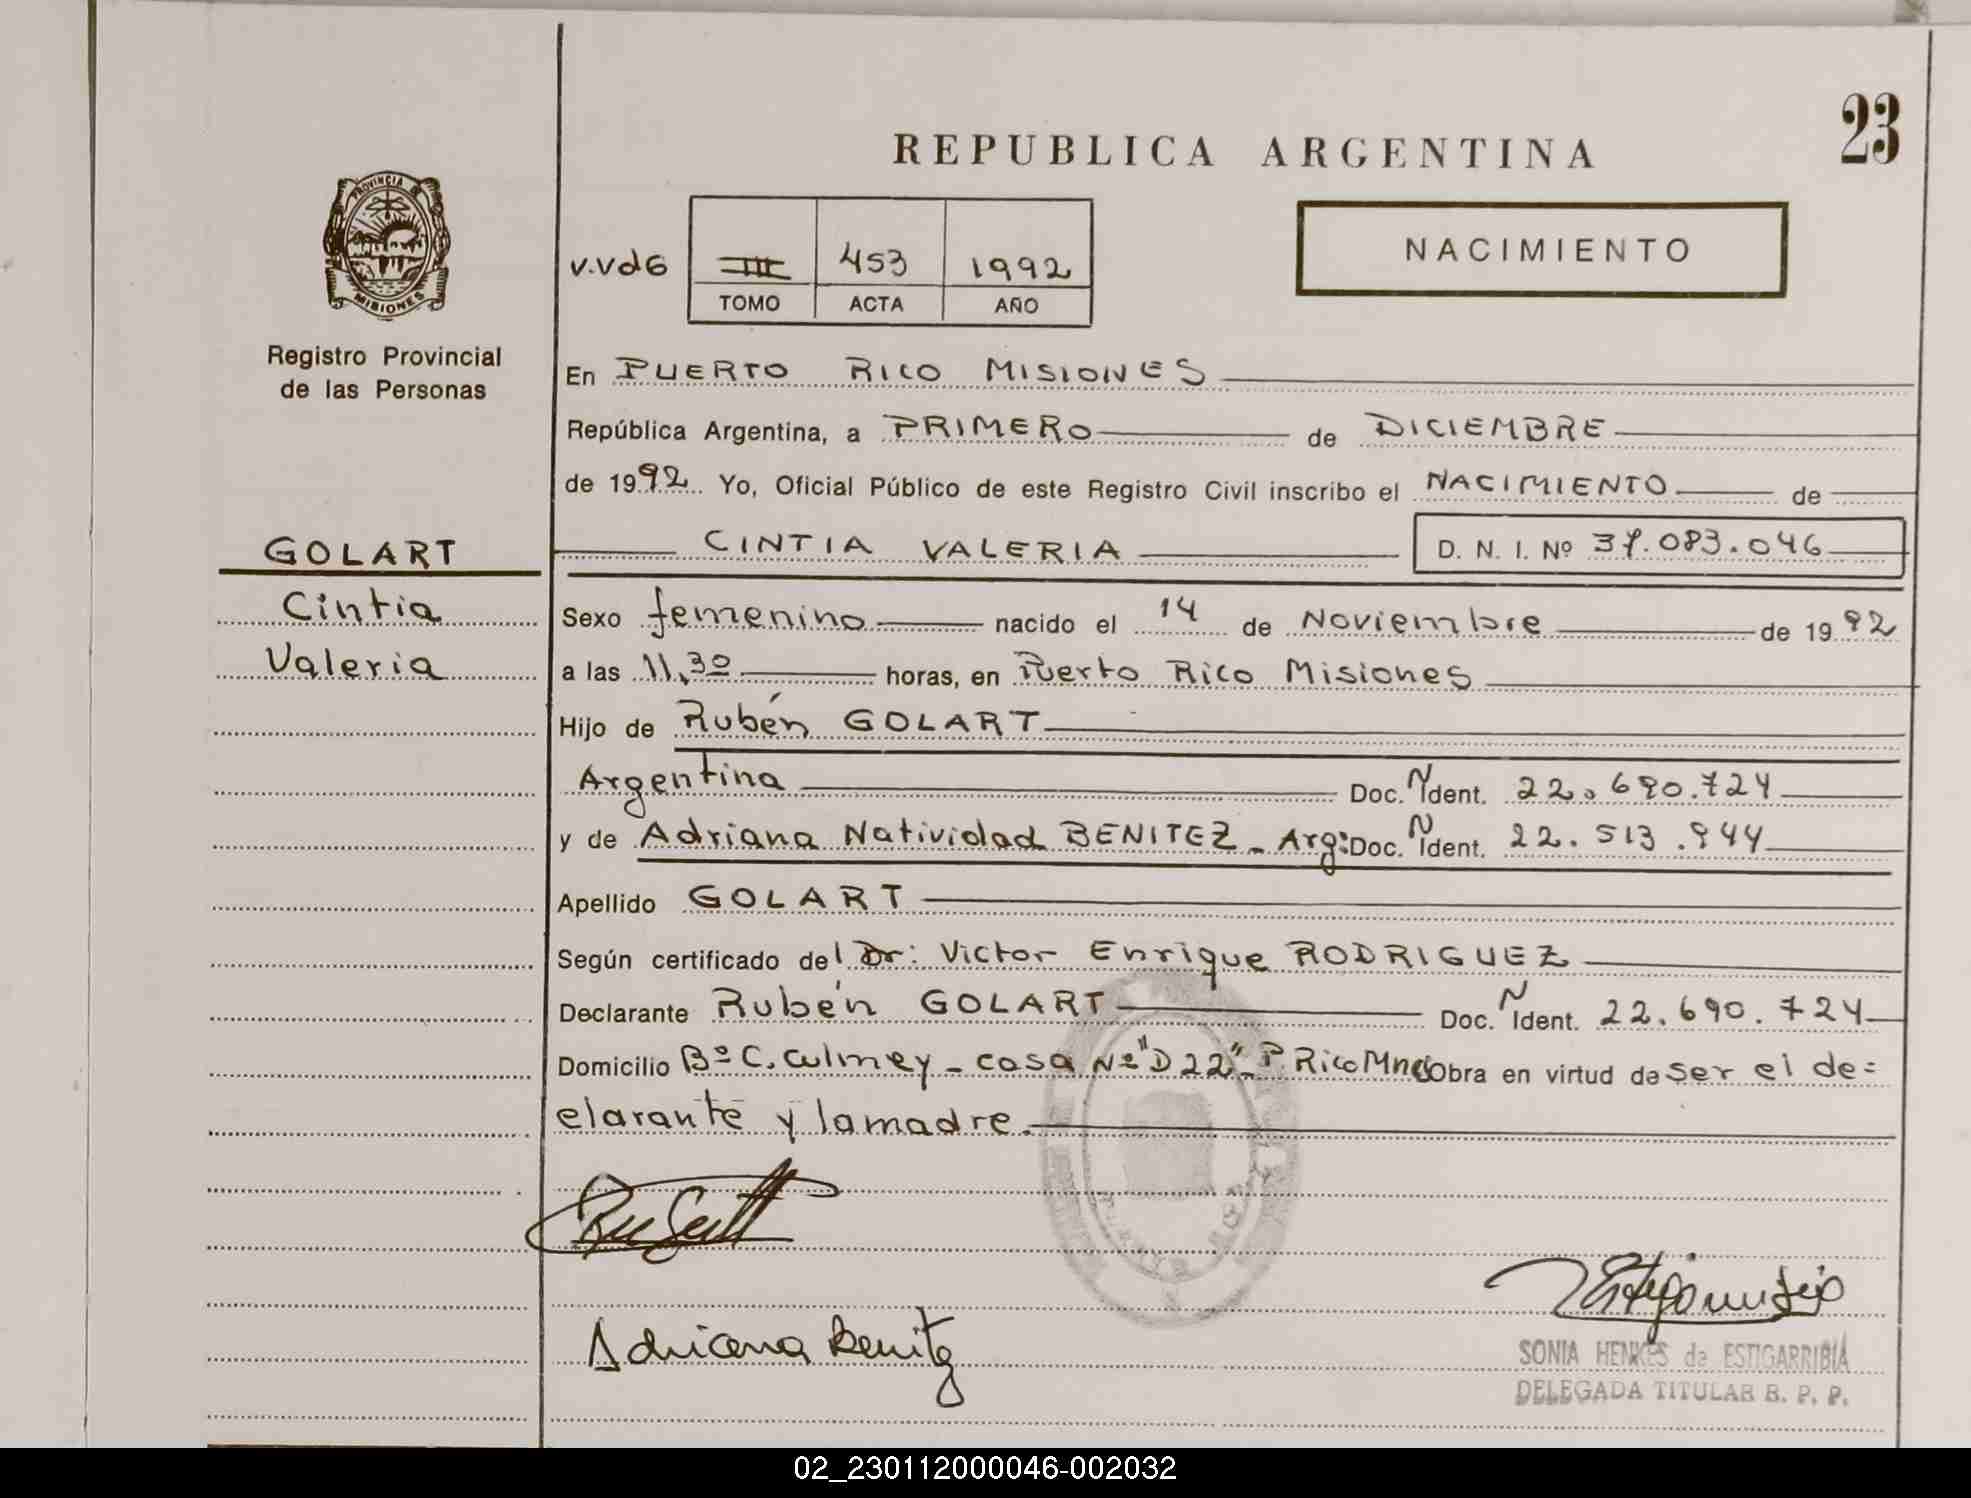 23
REPUBLICA ARGENTINA
PROVINCIA DE
MISIONES
Registro Provincial
de las Personas
v.vd6
III 453 1992
TOMO ACTA AÑO
NACIMIENTO
En PUERTO RICO MISIONES
República Argentina, a PRIMERO de DICIEMBRE
de 1992 Yo, Oficial Público de este Registro Civil inscribo el NACIMIENTO de
CINTIA VALERIA D. N. I. Nº 37.083.046
GOLART
Cintia
Valeria
Sexo femenino nacido el 14 de Noviembre de 1992
a las 11,30 horas, en Puerto Rico Misiones
Hijo de Rubén GOLART
Argentina Doc. N Ident. 22.690.724
y de Adriana Natividad BENITEZ - Arg: Doc. N Ident. 22.513.944
Apellido GOLART
Según certificado del Dr: Victor Enrique RODRIGUEZ
Declarante Rubén GOLART Doc. N Ident. 22.690.724
Domicilio Bº C. Culmey - casa Nº "D 22" - P. Rico Mnes Obra en virtud de ser el de=
clarante y la madre.
Adriana Benitez
SONIA HENKES de ESTIGARRIBIA
DELEGADA TITULAR R. P. P.
02_230112000046-002032